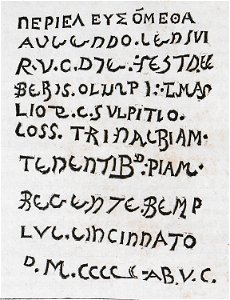 ΠΕΡΙΕΛΕΥΣΟΜΕΘΑ
AVGENDO.CENSVI
R.V.C.DIE.FESTDEC
BERIS.OLIMPI:T.MAN
LIO P.C.SVLPITIO.
COSS. TRINACRIAM.
TENENTIBD.PIAM.
REGENTE.REMP
LVC.CINCINNATO
D.M.CCCC AB.V.C.